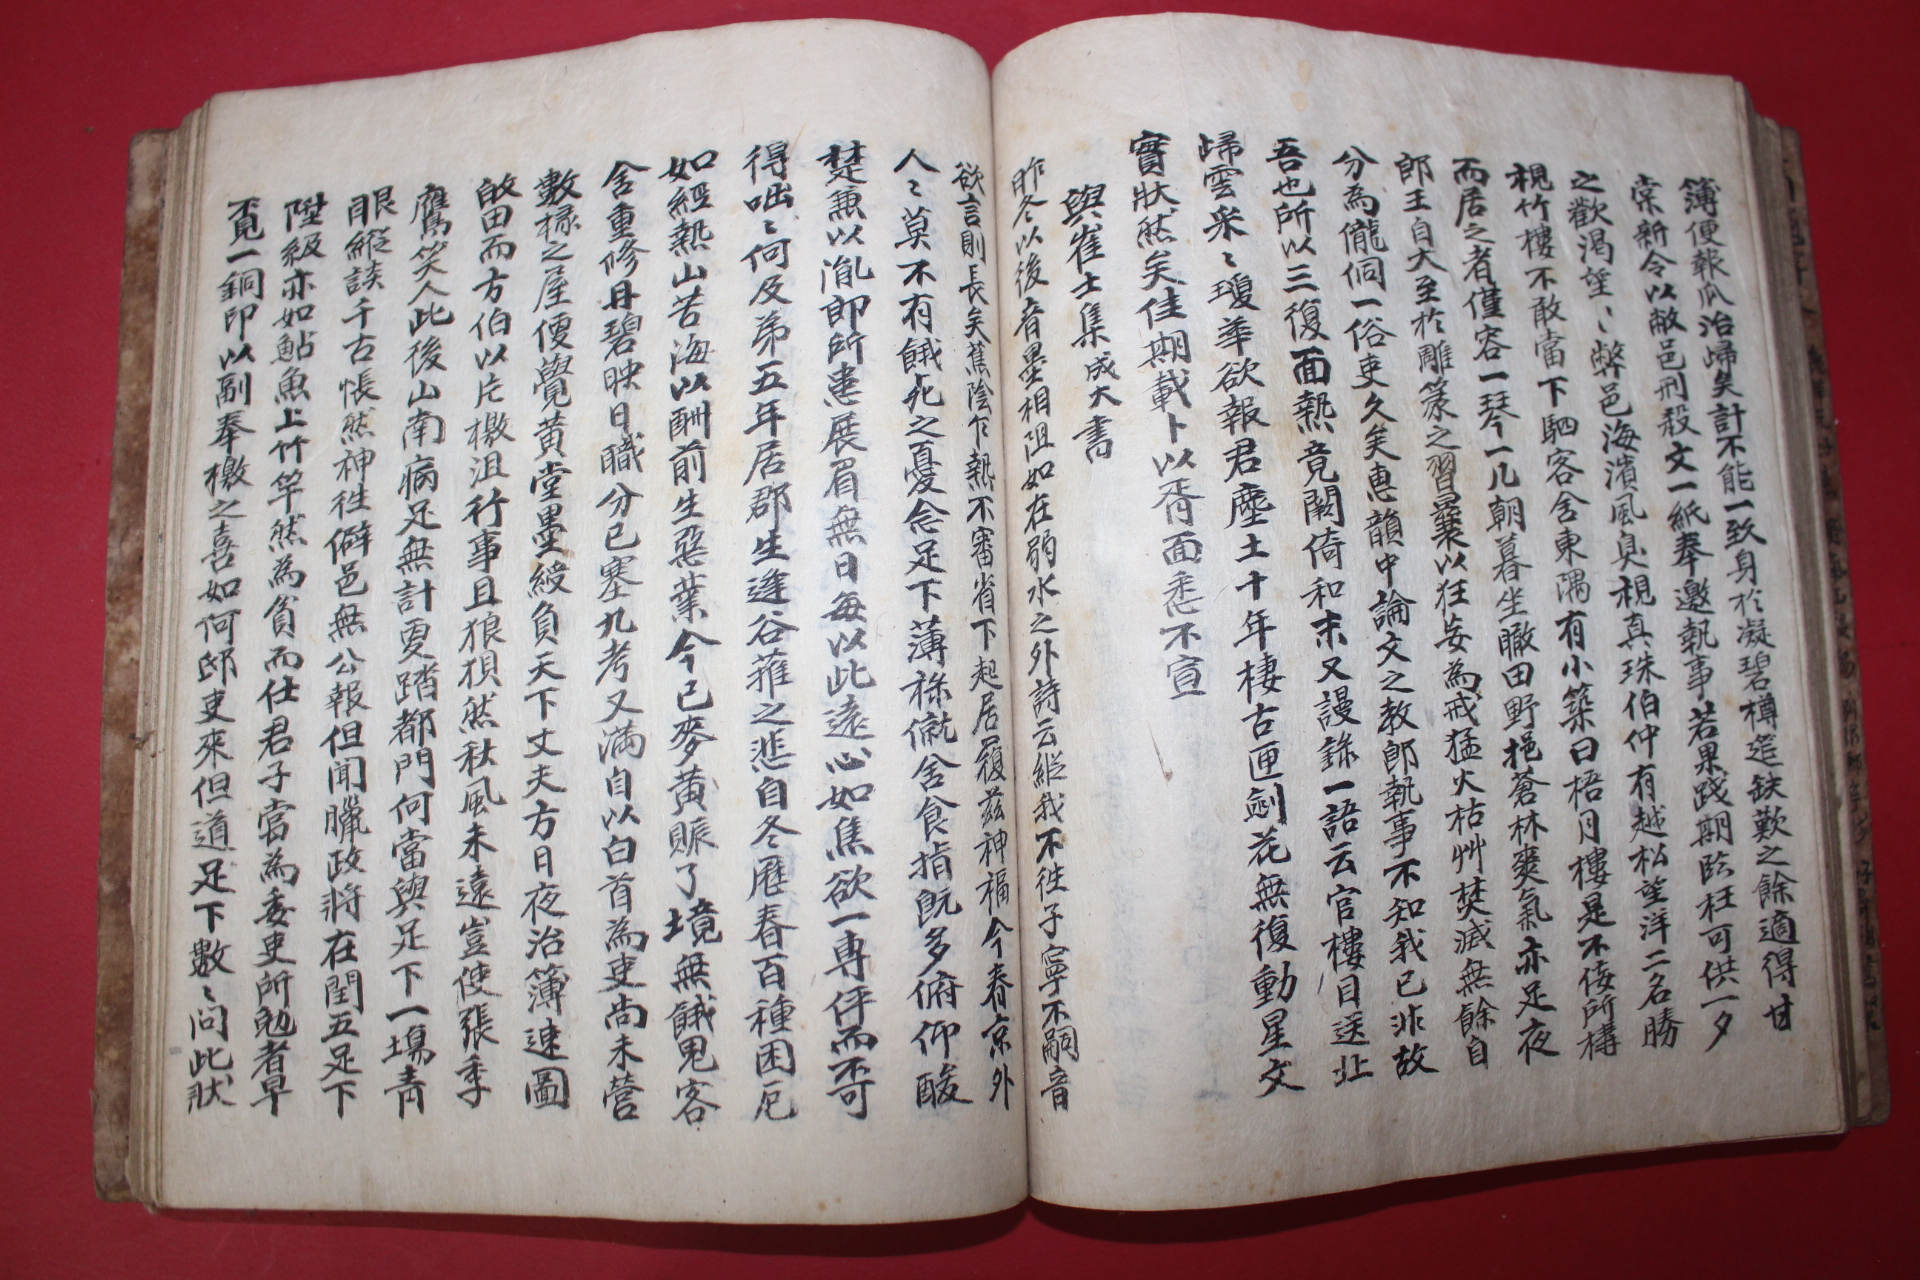 簿便報瓜治歸矣計不能一致身於凝碧樽筵缺歎之餘適得甘
棠新令以敝邑刑殺文一紙奉邀執事若果踐期臨枉可供一夕
之歡渴望〻弊邑海濱風臭視真珠伯仲有越松望洋二名勝
視竹樓不敢當下駟客舍東隅有小築曰梧月樓是不佞所構
而居之者僅容一琴一几朝暮坐瞰田野挹蒼林爽氣亦足夜
郎王自大至於雕篆之習曩以狂妄為戒猛火枯艸焚滅無餘自
分為儱侗一俗吏久矣惠韻中論文之教郎執事不知我已非故
吾也所以三復面熱竟闕倚和末又謾錄一語云官樓目送北
歸雲采〻瓊華欲報君塵土十年棲古匣劍花無復動星文
實狀然矣佳期載卜以胥面悉不宣
與崔士集成大書
昨冬以後音墨相阻如在弱水之外詩云縱我不徃子寧不嗣音
欲言則長矣蕉陰乍熱不審省下起居履玆神福今春京外
人〻莫不有餓死之憂念足下薄祿僦舍食指旣多俯仰酸
楚兼以胤郎所患展眉無日每以此遠心如焦欲一專伻而不可
得咄〻何及弟五年居郡生逢谷蓷之悲自冬歷春百種困厄
如經熱山苦海以酬前生惡業今已麥黃賑了境無餓鬼客
舍重修丹碧映日職分已塞九考又滿自以白首為吏尚未營
數椽之屋便覺黃堂墨綬負天下丈夫方日夜治簿速圖
畋田而方伯以片檄沮行事且狼狽然秋風未遠豈使張季
鷹笑人此後山南病足無計更踏都門何當與足下一場靑
眼縱談千古悵然神徃僻邑無公報但聞臘政將在閏五足下
陞級亦如鮎魚上竹竿然為貧而仕君子當為委吏所勉者早
覓一銅印以副奉檄之喜如何邸吏來但道足下數〻問此狀